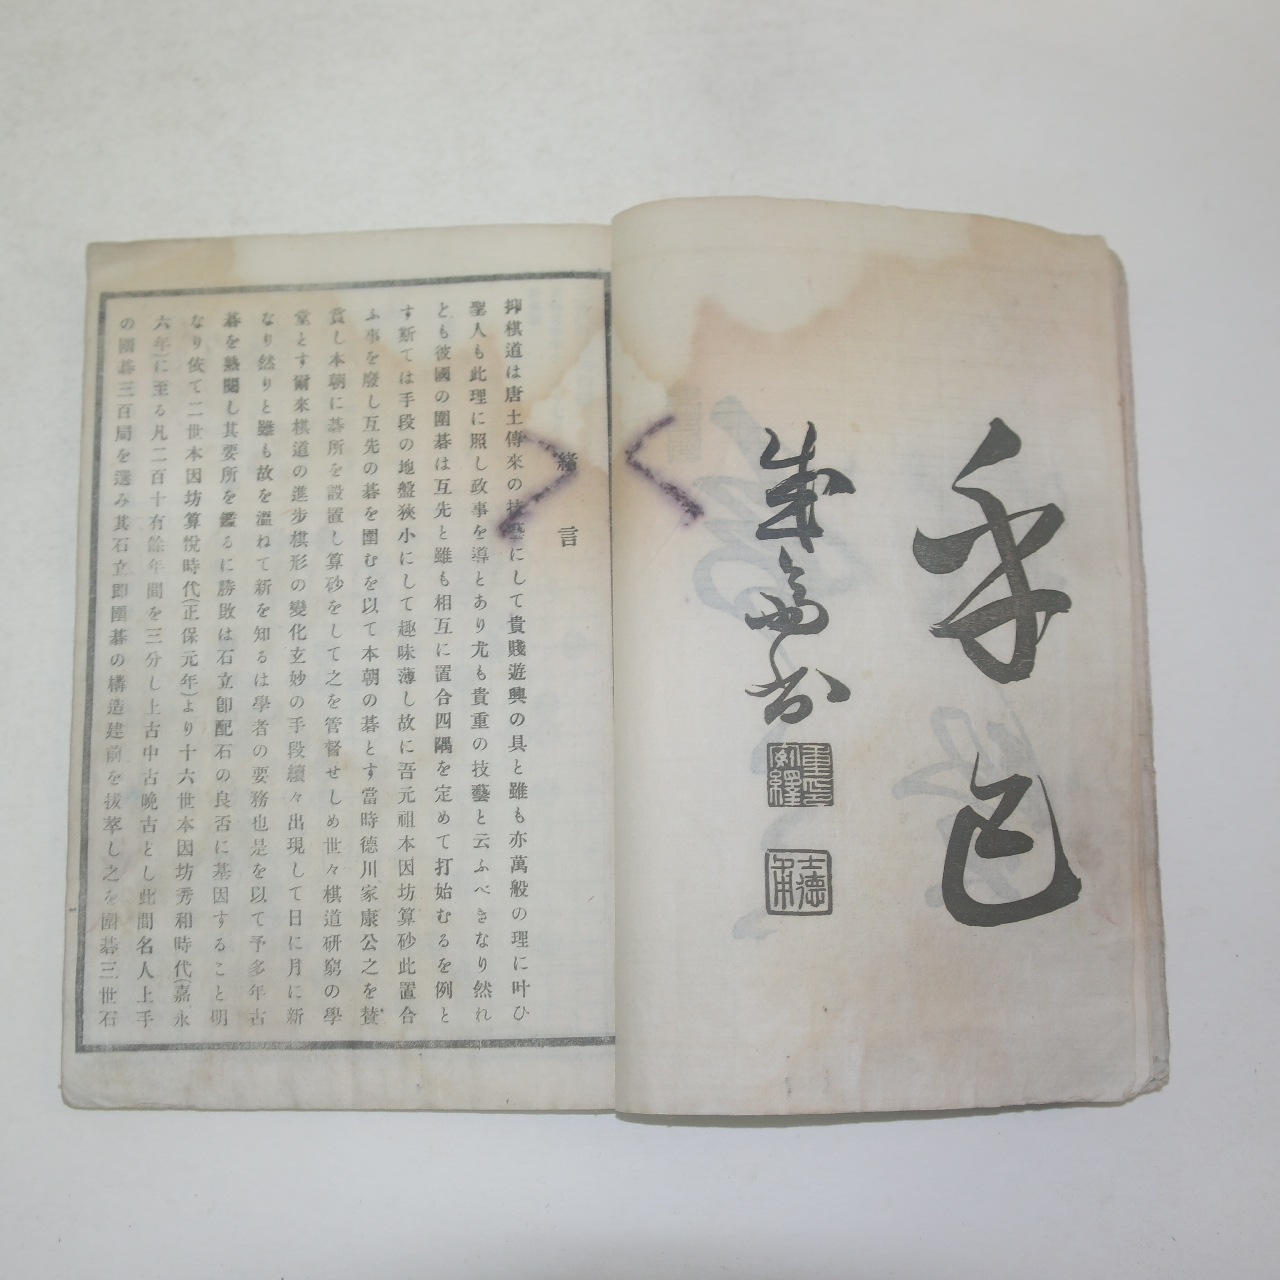 乎己
緒言
抑棋道は唐土傳來の技藝にして貴賤遊興の具と雖も亦萬般の理に叶ひ
聖人も此理に照し政事を導とあり尤も貴重の技藝と云ふべきなり然れ
とも彼國の圍碁は互先と雖も相互に置合四隅を定めて打始むるを例と
す斯ては手段の地盤狹小にして趣味薄し故に吾元祖本因坊算砂此置合
ふ事を廢し互先の碁を圍むを以て本朝の碁とす當時德川家康公之を賛
賞し本朝に碁所を設置し算砂をして之を管督せしめ世々棋道硏窮の學
堂とす爾來棋道の進步棋形の變化玄妙の手段續々出現して日に月に新
なり然りと雖も故を溫ねて新を知るは學者の要務也是を以て予多年古
碁を熱閱し其要所を鑑るに勝敗は石立卽配石の良否に基因すること明
なり依て二世本因坊算悅時代(正保元年)より十六世本因坊秀和時代(嘉永
六年)に至る凡二百十有餘年間を三分し上古中古晩古とし此間名人上手
の圍碁三百局を選み其石立卽圍碁の構造建前を拔萃し之を圍碁三世石